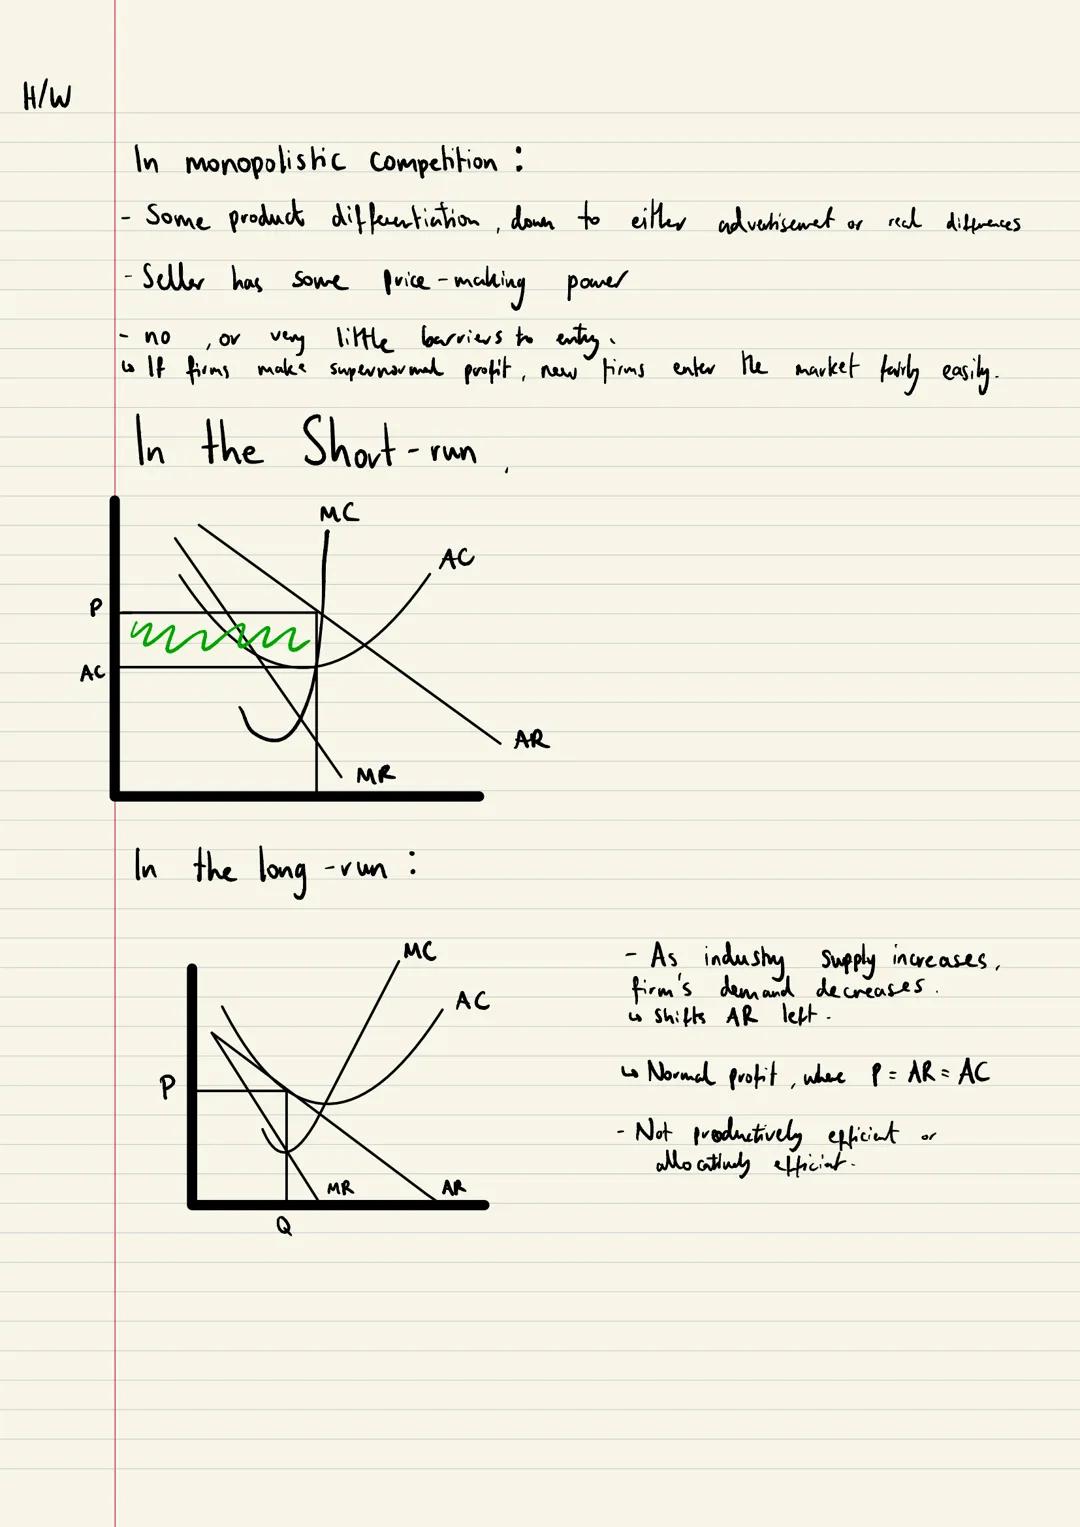 H/W
In monopolistic competition :
- Some product differentiation, down to either advertisemet or real differences
- Seller has some price-making power
- no, or very little barriers to entry.
↳ If firms make supernormal profit, new firms enter the market fairly easily.
In the Short-run,
MC
AC
P
AC
AR
MR
In the long-run :
MC
AC
P
MR
AR
Q
- As industry supply increases,
firm's demand decreases.
↳ Shifts AR left.
↳ Normal profit, where P = AR = AC
- Not productively efficient or
allocatively efficient.